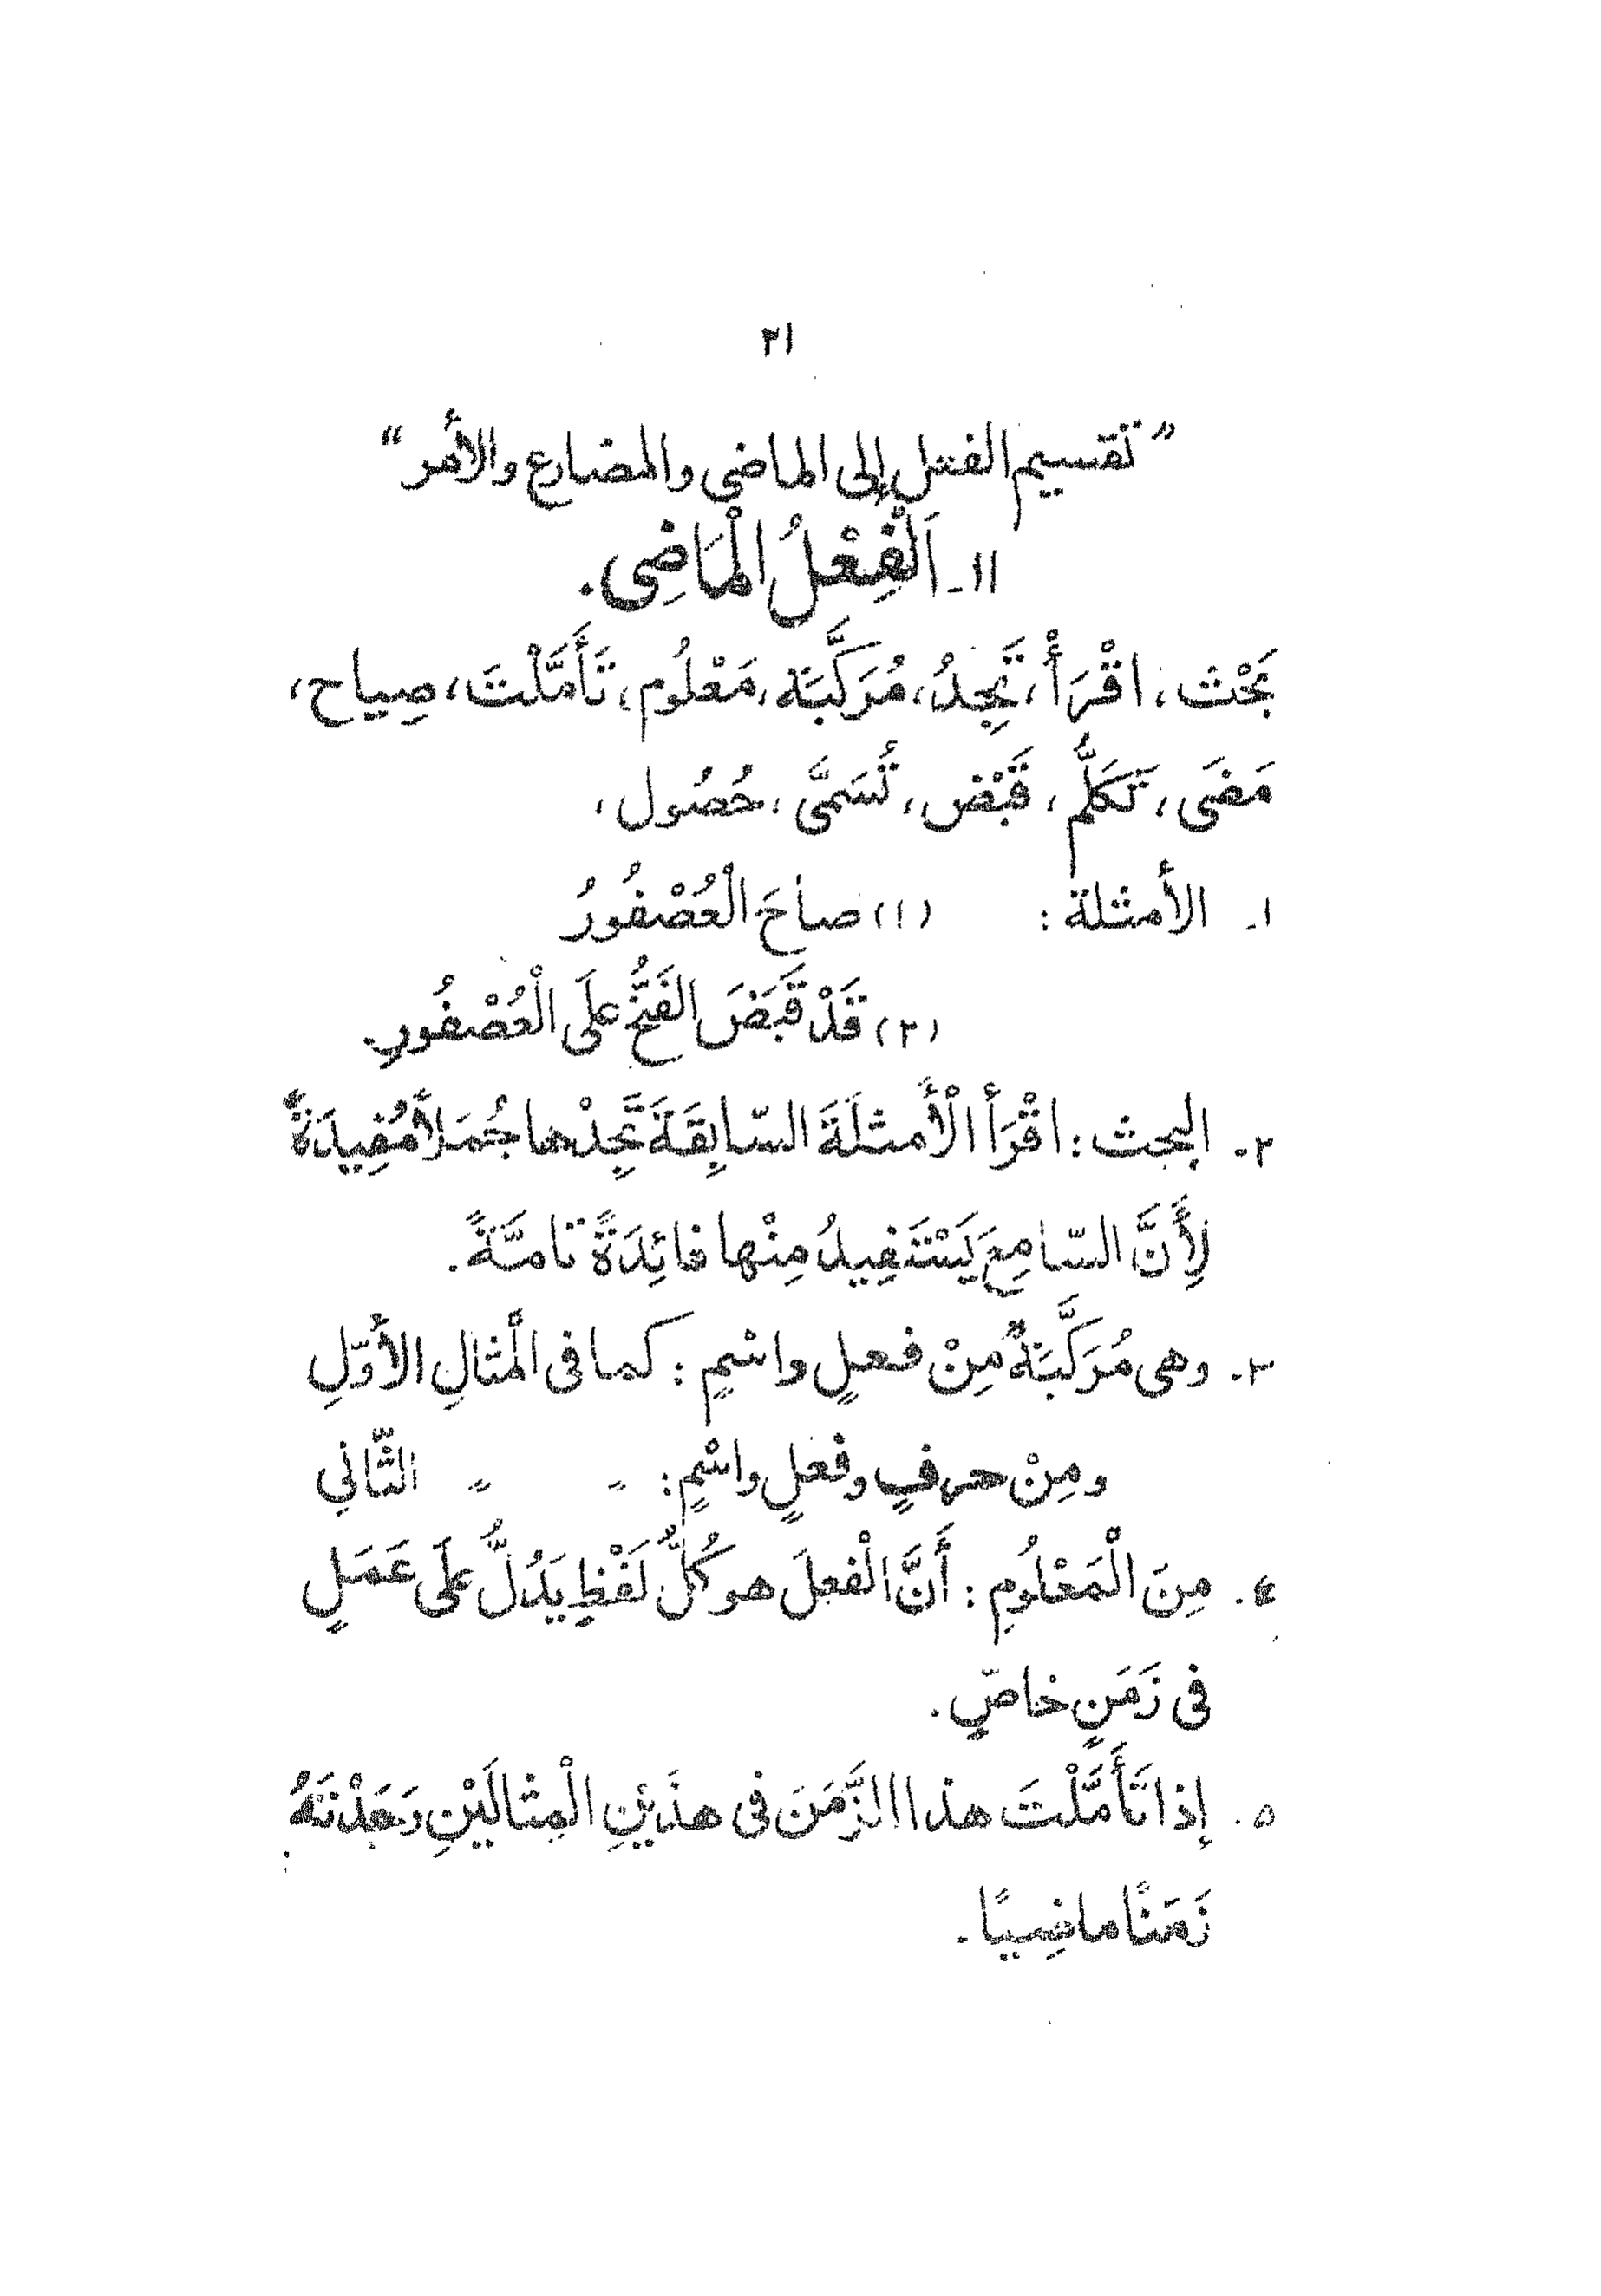 ٢١
”تقسيم الفعل إلى الماضى والمضارع والأمر“
١١- اَلْفِعْلُ الْمَاضِى.
بَحْث، اقْرَأْ، تَجِدُ، مُرَكَّبَة، مَعْلُوم، تَأَمَّلْتَ، صِياح،
مَضَى، تَكَلَّم، قَبْض، تُسَمَّى، حُصُول،
١- الأمثلة : (١) صاحَ الْعُصْفُورُ
(٢) قَدْ قَبَضَ الفَخُّ عَلَى الْعُصْفُورِ.
٢- البحث : اقْرَأ الْأَمثلَةَ السّابِقَةَ تَجِدْها جُمَلاً مُفِيدَةً
لِأَنَّ السّامِعَ يَسْتَفِيدُ مِنْها فائِدَةً تامَّةً.
٣. وهى مُرَكَّبَةٌ مِنْ فعلٍ واسْمٍ : كما فى الْمثالِ الأَوّلِ
ومِنْ حرفٍ وفعلٍ واسْمٍ : " " الثّاني
٤. مِنَ الْمَعْلُومِ : أَنَّ الْفعلَ هو كُلُّ لَفْظٍ يَدُلُّ عَلَى عَمَلٍ
فى زَمَنٍ خاصٍّ.
٥. إذا تَأَمَّلْتَ هذا الزَّمَنَ فى هذَيْنِ الْمِثالَيْنِ وَجَدْتَهُ
زَمَنًا ماضِيًا.